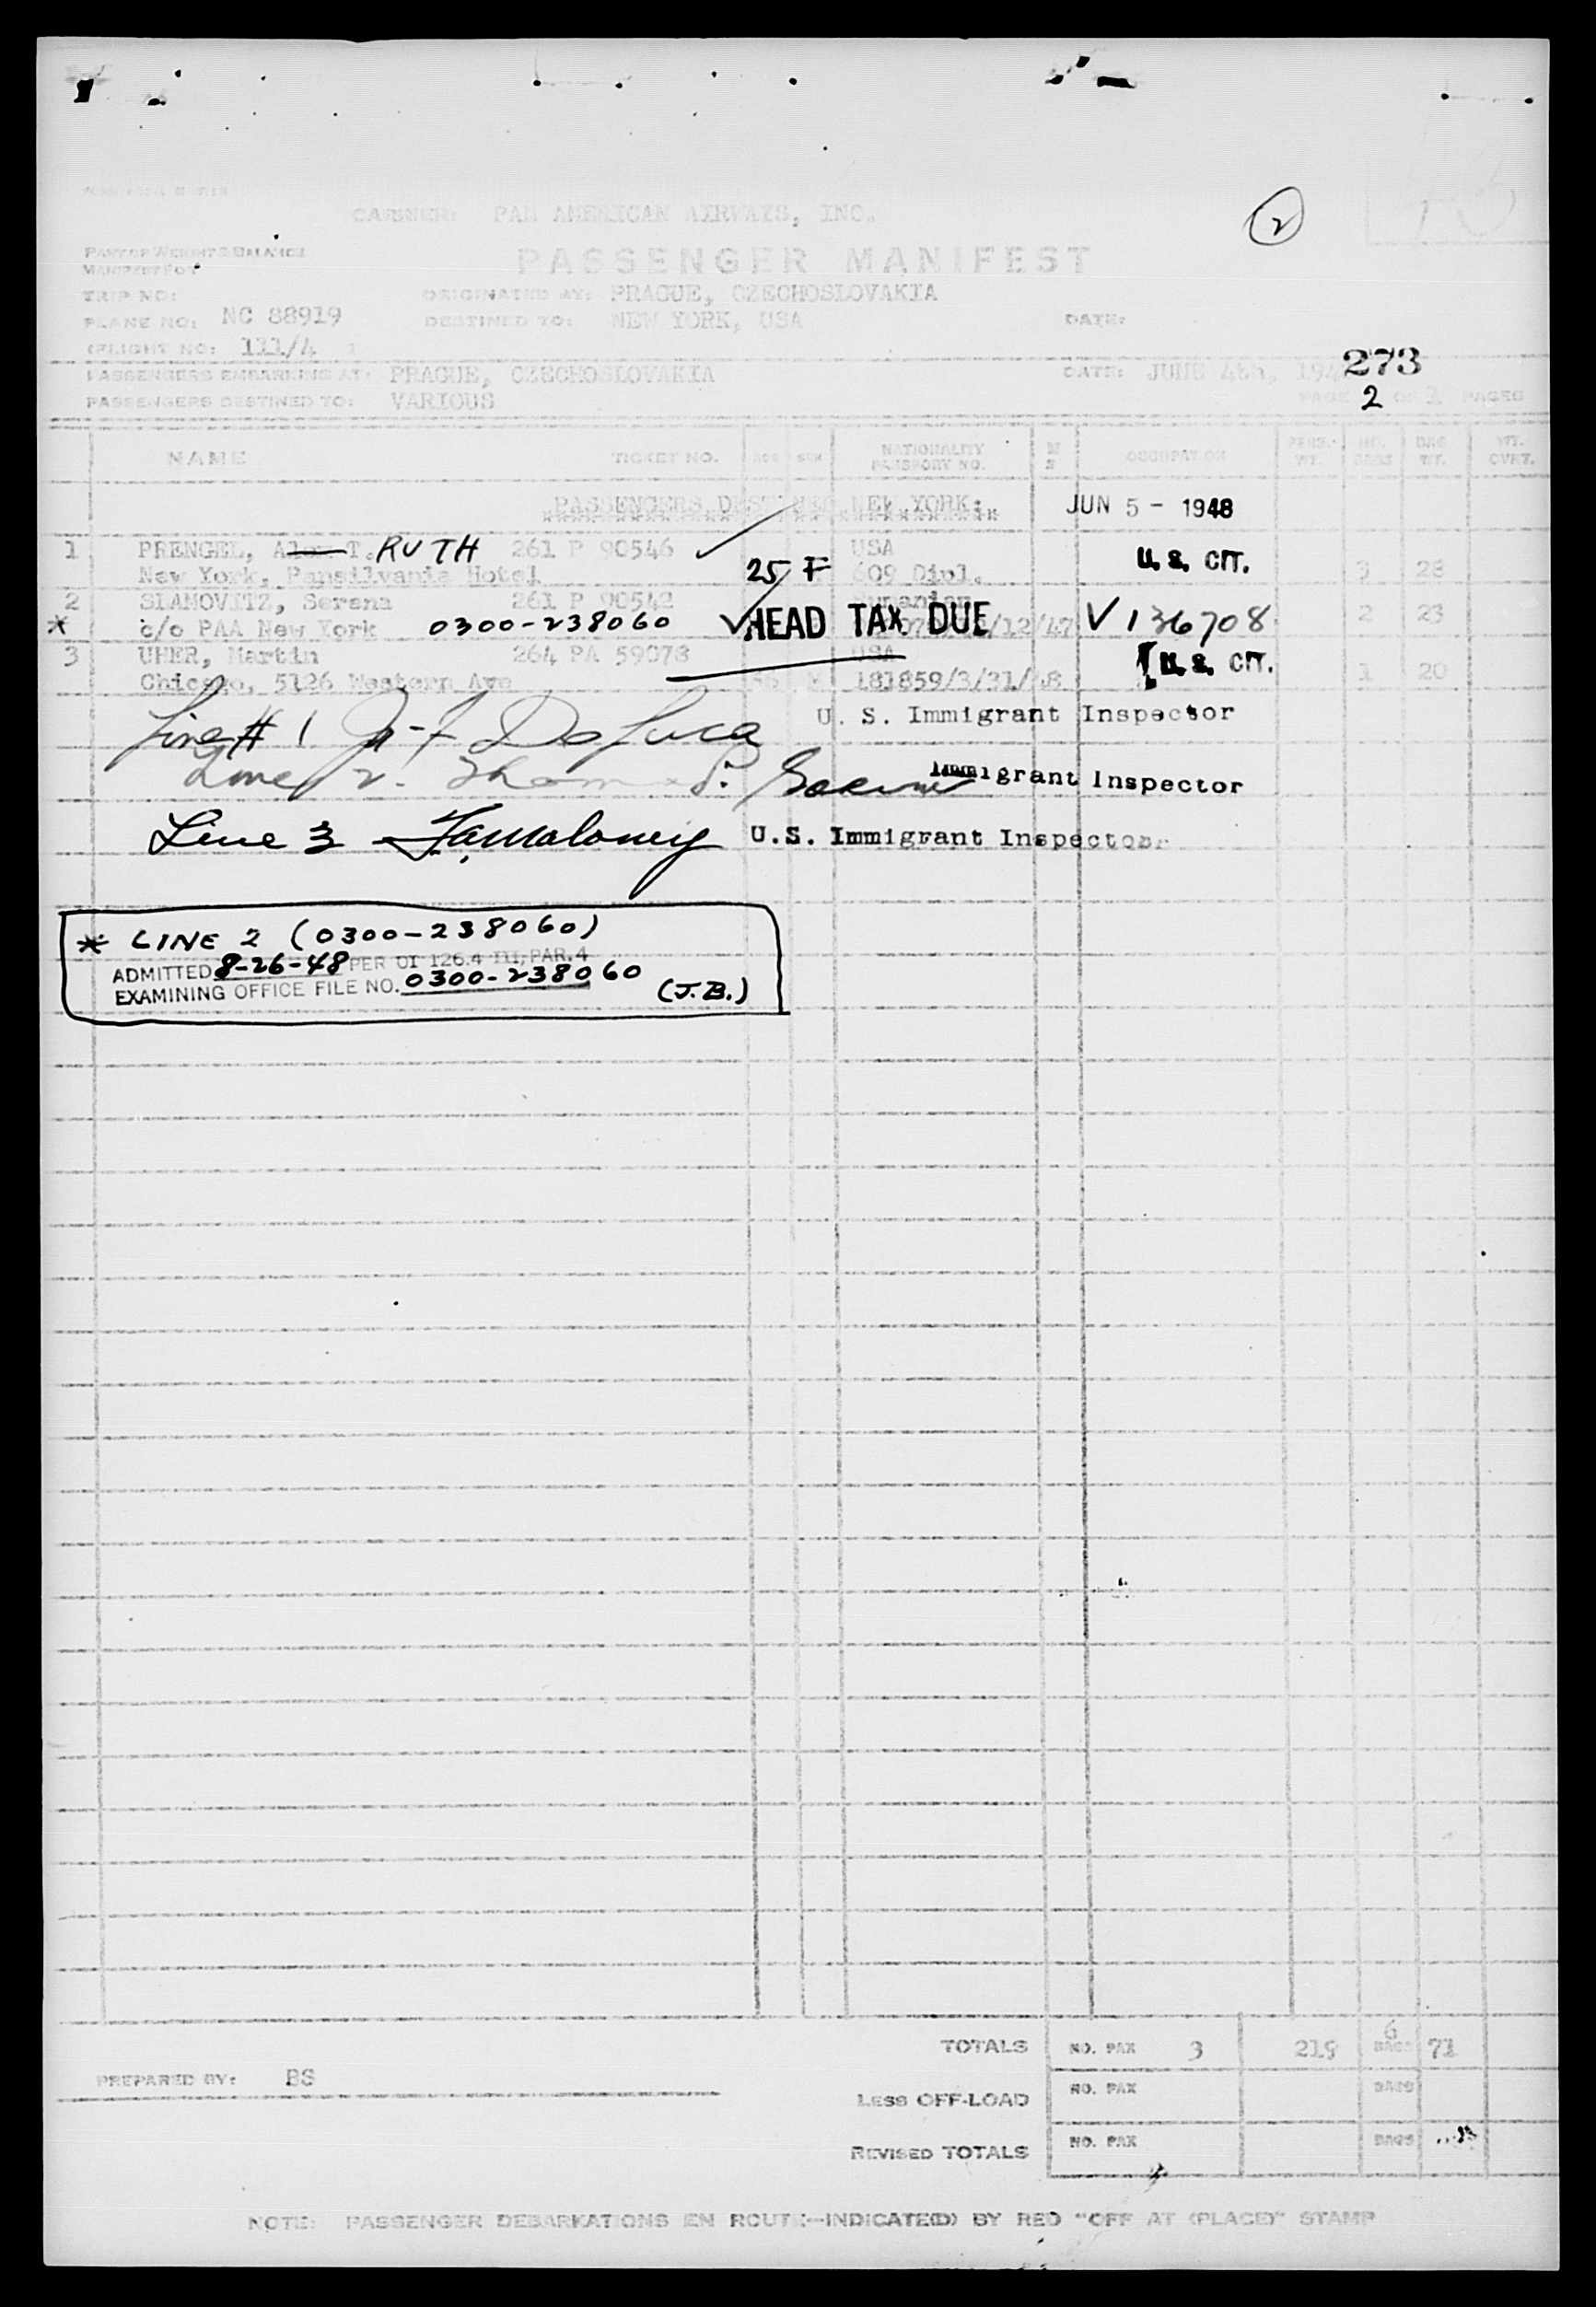 CARRIER: PAN AMERICAN AIRWAYS, INC.
2
PART OF WEIGHT & BALANCE
MANIFEST FOR
PASSENGER MANIFEST
TRIP NO:
ORIGINATED AT: PRAGUE, CZECHOSLOVAKIA
PLANE NO: NC 88919
DESTINED TO: NEW YORK, USA
DATE:
(FLIGHT NO: 111/4
273
PASSENGERS EMBARKING AT: PRAGUE, CZECHOSLOVAKIA
DATE: JUNE 4th, 194
PASSENGERS DESTINED TO: VARIOUS
PAGE 2 OF PAGES
NAME TICKET NO. AGE SEX NATIONALITY PASSPORT NO. M S OCCUPATION PERS. WT. NO. BAGS BAG WT. WT. CVRT.
PASSENGERS DESTINED NEW YORK:
JUN 5 - 1948
1 PRENGEL, T. RUTH 261 P 90546 USA U.S. CIT.
New York, Pansilvania Hotel 25 F 609 Dipl. 3 28
2 SLAMOVITZ, Serena 261 P 90542
* c/o PAA New York 0300-238060 HEAD TAX DUE /12/47 V 136708 2 23
3 UHER, Martin 264 PA 59078 USA U.S. CIT.
Chicago, 5126 Western Ave M 181859/3/31/48 1 20
Line # 1 DeLuca U. S. Immigrant Inspector
Line 2. Immigrant Inspector
Line 3 Maloney U.S. Immigrant Inspector
* LINE 2 (0300-238060)
ADMITTED 8-26-48 PER OI 126.4 III, PAR. 4
EXAMINING OFFICE FILE NO. 0300-238060 (J.B.)
TOTALS NO. PAX 3 219 6 BAGS 71
PREPARED BY: BS
LESS OFF-LOAD NO. PAX BAGS
REVISED TOTALS NO. PAX BAGS
NOTE: PASSENGER DEBARKATIONS EN ROUTE-INDICATE(D) BY RED "OFF AT (PLACE)" STAMP